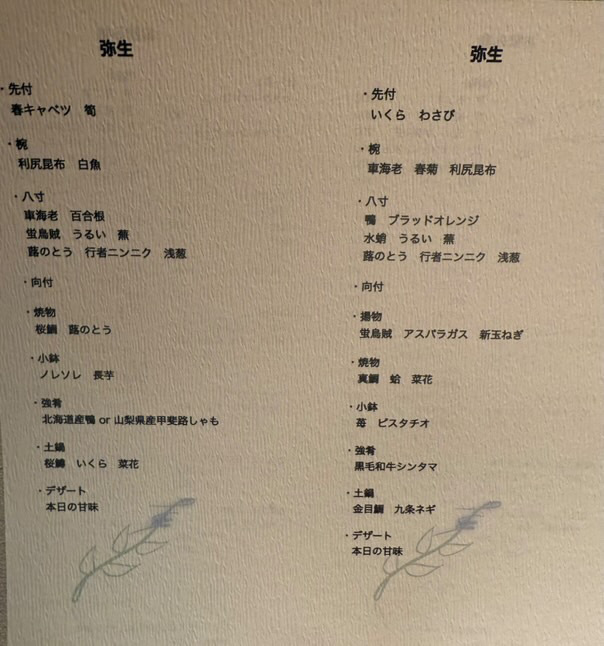 弥生
・先付
春キャベツ 筍
・椀
利尻昆布 白魚
・八寸
車海老 百合根
蛍烏賊 うるい 蕪
蕗のとう 行者ニンニク 浅葱
・向付
・焼物
桜鯛 蕗のとう
・小鉢
ノレソレ 長芋
・強肴
北海道産鴨 or 山梨県産甲斐路しゃも
・土鍋
桜鱒 いくら 菜花
・デザート
本日の甘味
弥生
・先付
いくら わさび
・椀
車海老 春菊 利尻昆布
・八寸
鴨 ブラッドオレンジ
水蛸 うるい 蕪
蕗のとう 行者ニンニク 浅葱
・向付
・揚物
蛍烏賊 アスパラガス 新玉ねぎ
・焼物
真鯛 蛤 菜花
・小鉢
苺 ピスタチオ
・強肴
黒毛和牛シンタマ
・土鍋
金目鯛 九条ネギ
・デザート
本日の甘味